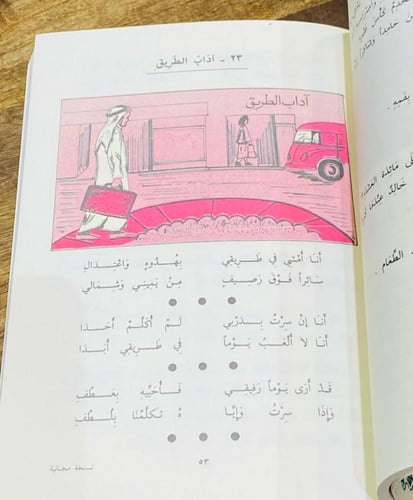 ٢٣ - آدَابُ الطَّرِيقِ
آداب الطريق
أَنَا أَمْشِي فِي طَرِيقِي بِهُدُوءٍ وَاعْتِدَالِ
سَائِراً فَوْقَ رَصِيفٍ مِنْ يَمِينِي وَشِمَالِي
أَنَا إِنْ سِرْتُ بِدَرْبِي لَمْ أُكَلِّمْ أَحَدَا
أَنَا لَا أَلْعَبُ يَوْماً فِي طَرِيقِي أَبَدَا
قَدْ أَرَى يَوْماً رَفِيقِي فَأُحَيِّيهِ بِعَطْفِ
وَإِذَا سِرْتُ وَإِيَّا هُ تَكَلَّمْنَا بِلُطْفِ
٥٣
نسخة مجانية
بِفَمِهِ .
مَائِدَةِ
خَالِدٌ
الطَّعَامِ .